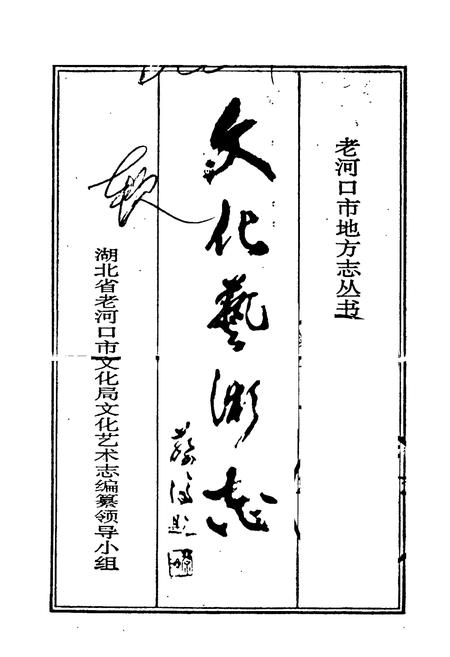 老河口市地方志丛书
文化藝术志
湖北省老河口市文化局文化艺术志编纂领导小组